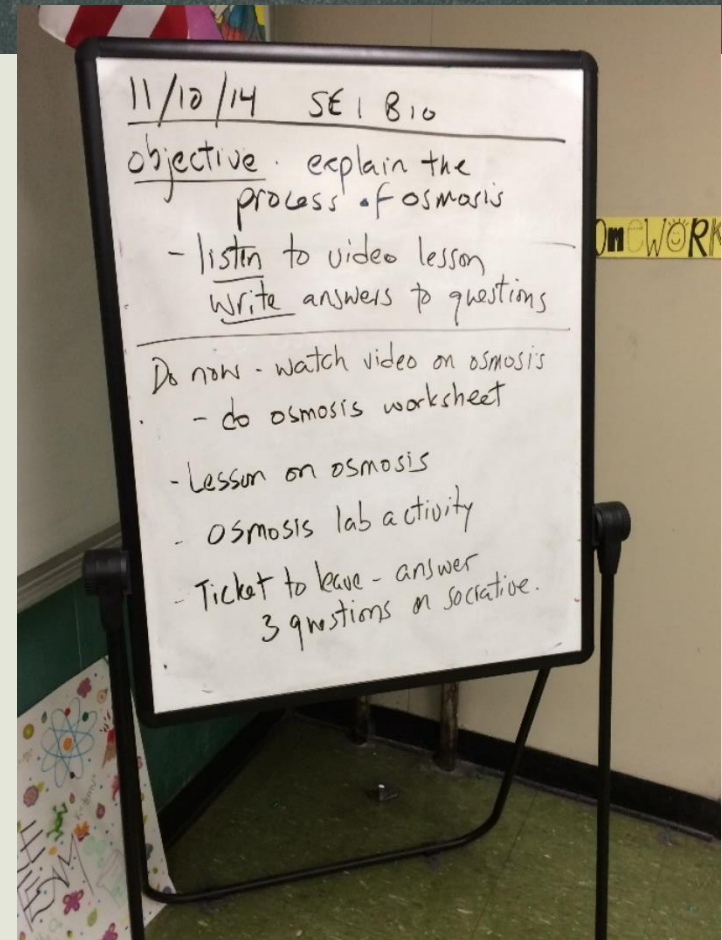 11/10/14 SEI Bio
objective . explain the
process of osmosis
- listen to video lesson
Write answers to questions
Do now - watch video on osmosis
- do osmosis worksheet
- Lesson on osmosis
- Osmosis lab activity
- Ticket to leave - answer
3 questions on socrative.
omEWORK